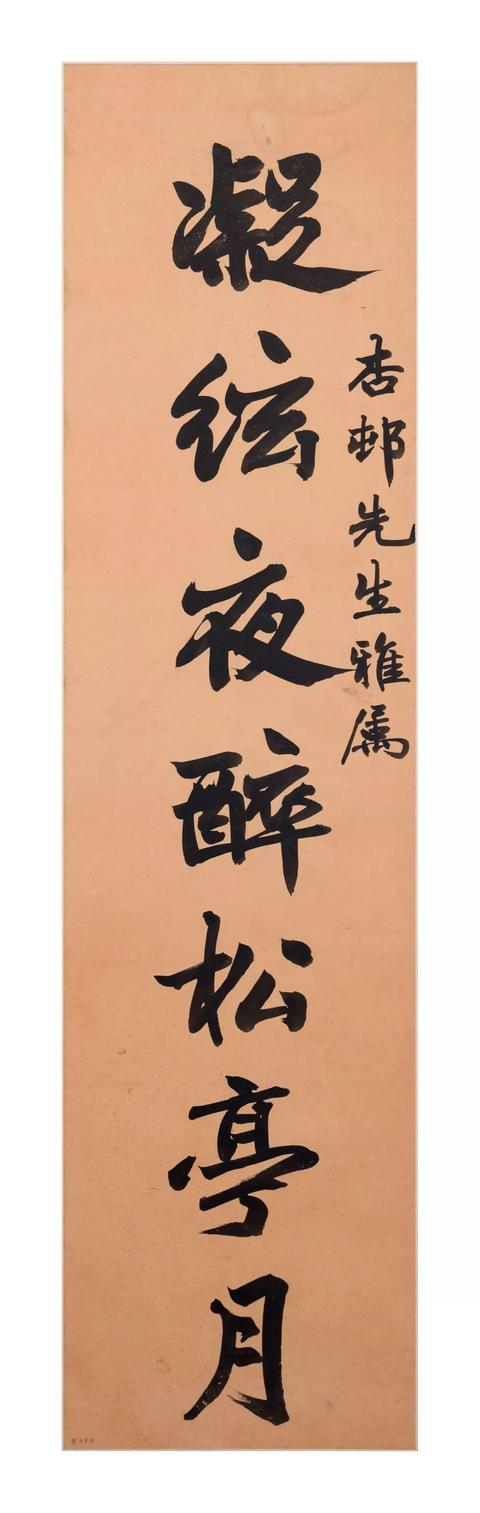 杏邨先生雅属
凝弦夜醉松亭月